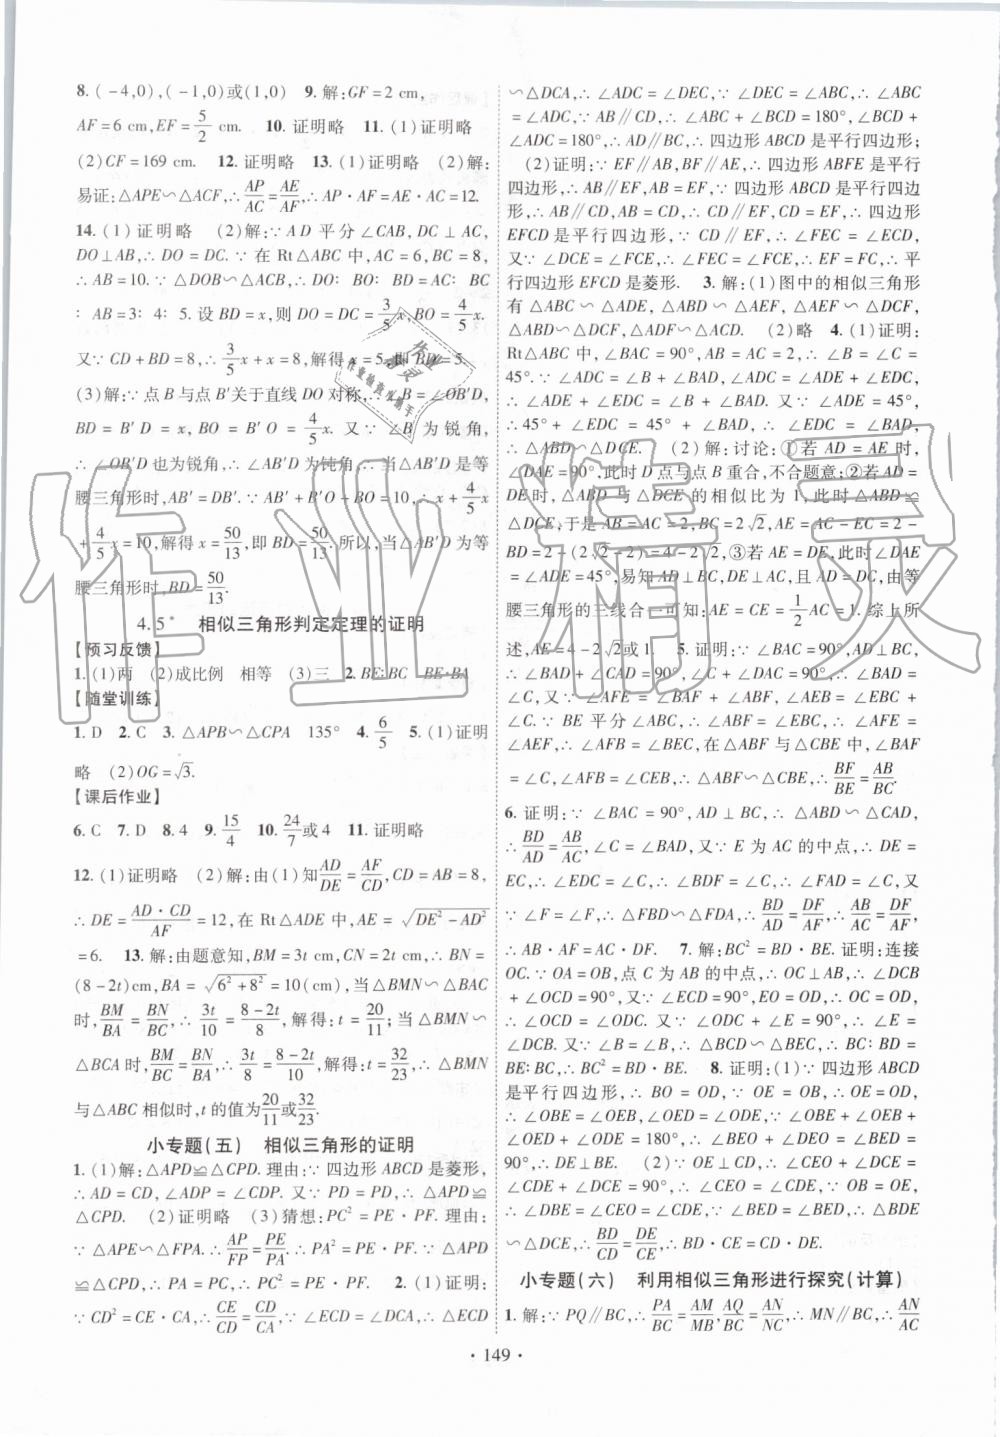 8. (-4,0),(-1,0)或(1,0)　9. 解:GF=2 cm,
AF=6 cm,EF=5/2 cm.　10. 证明略　11. (1)证明略
(2)CF=169 cm.　12. 证明略　13. (1)证明略　(2)解:
易证:△APE∽△ACF,∴AP/AC=AE/AF,∴AP·AF=AC·AE=12.
14. (1)证明略　(2)解:∵AD平分∠CAB,DC⊥AC,
DO⊥AB,∴DO=DC.∵在Rt△ABC中,AC=6,BC=8,
∴AB=10.∵△DOB∽△ACB,∴DO∶BO∶BD=AC∶BC
∶AB=3∶4∶5.设BD=x,则DO=DC=3/5x,BO=4/5x.
又∵CD+BD=8,∴3/5x+x=8,解得x=5,即BD=5.
(3)解:∵点B与点B′关于直线DO对称,∴∠B=∠OB′D,
BD=B′D=x,BO=B′O=4/5x.又∵∠B为锐角,
∴∠OB′D也为锐角,∴∠AB′D为钝角,∴当△AB′D是等
腰三角形时,AB′=DB′.∵AB′+B′O+BO=10,∴x+4/5x
+4/5x=10,解得x=50/13,即BD=50/13.所以,当△AB′D为等
腰三角形时,BD=50/13.
4.5*　相似三角形判定定理的证明
【预习反馈】
1. (1)两　(2)成比例　相等　(3)三　2. BE∶BC　BE·BA
【随堂训练】
1. D　2. C　3. △APB∽△CPA　135°　4. 6/5　5. (1)证明
略　(2)OG=√3.
【课后作业】
6. C　7. D　8. 4　9. 15/4　10. 24/7或4　11. 证明略
12. (1)证明略　(2)解:由(1)知AD/DE=AF/CD,CD=AB=8,
∴DE=AD·CD/AF=12,在Rt△ADE中,AE=√(DE²-AD²)
=6.　13. 解:由题意知,BM=3t cm,CN=2t cm,∴BN=
(8-2t)cm,BA=√(6²+8²)=10(cm),当△BMN∽△BAC
时,BM/BA=BN/BC,∴3t/10=(8-2t)/8,解得:t=20/11;当△BMN∽
△BCA时,BM/BC=BN/BA,∴3t/8=(8-2t)/10,解得:t=32/23,∴△BMN
与△ABC相似时,t的值为20/11或32/23.
小专题(五)　相似三角形的证明
1. (1)解:△APD≌△CPD.理由:∵四边形ABCD是菱形,
∴AD=CD,∠ADP=∠CDP.又∵PD=PD,∴△APD≌
△CPD.　(2)证明略　(3)猜想:PC²=PE·PF.理由:
∵△APE∽△FPA.∴AP/FP=PE/PA,∴PA²=PE·PF.∵△APD
≌△CPD,∴PA=PC,∴PC²=PE·PF.　2. (1)证明:
∵CD²=CE·CA,∴CE/CD=CD/CA,∵∠ECD=∠DCA,∴△ECD
∽△DCA,∴∠ADC=∠DEC,∵∠DEC=∠ABC,∴∠ABC
=∠ADC,∵AB∥CD,∴∠ABC+∠BCD=180°,∠BCD+
∠ADC=180°,∴AD∥BC,∴四边形ABCD是平行四边形;
(2)证明:∵EF∥AB,BF∥AE,∴四边形ABFE是平行
四边形,∴AB∥EF,AB=EF,∵四边形ABCD是平行四边
形,∴AB∥CD,AB=CD,∴CD∥EF,CD=EF,∴四边形
EFCD是平行四边形,∵CD∥EF,∴∠FEC=∠ECD,
又∵∠DCE=∠FCE,∴∠FEC=∠FCE,∴EF=FC,∴平
行四边形EFCD是菱形.　3. 解:(1)图中的相似三角形
有△ABC∽△ADE,△ABD∽△AEF,△AEF∽△DCF,
△ABD∽△DCF,△ADF∽△ACD.　(2)略　4. (1)证明:
Rt△ABC中,∠BAC=90°,AB=AC=2,∴∠B=∠C=
45°.∵∠ADC=∠B+∠BAD,∠ADC=∠ADE+∠EDC,
∴∠ADE+∠EDC=∠B+∠BAD.又∵∠ADE=45°,
∴45°+∠EDC=45°+∠BAD,∴∠EDC=∠BAD,
∴△ABD∽△DCE.　(2)解:讨论:①若AD=AE时,
∠DAE=90°,此时D点与点B重合,不合题意;②若AD=
DE时,△ABD与△DCE的相似比为1,此时△ABD≌
△DCE,于是AB=AC=2,BC=2√2,AE=AC-EC=2-
BD=2-(2√2-2)=4-2√2,③若AE=DE,此时∠DAE
=∠ADE=45°,易知AD⊥BC,DE⊥AC,且AD=DC,由等
腰三角形的三线合一可知:AE=CE=1/2AC=1.综上所
述,AE=4-2√2或1.　5. 证明:∵∠BAC=90°,∴∠BAD
+∠CAD=90°,∵AD⊥BC,∴∠C+∠DAC=90°,∴∠BAD
=∠C,又∵∠AFE=∠BAF+∠ABF,∠AEB=∠EBC+
∠C,∵BE平分∠ABC,∴∠ABF=∠EBC,∴∠AFE=
∠AEF,∴∠AFB=∠BEC,在△ABF与△CBE中,∠BAF
=∠C,∠AFB=∠CEB,∴△ABF∽△CBE,∴BF/BE=AB/BC.
6. 证明:∵∠BAC=90°,AD⊥BC,∴△ABD∽△CAD,
∴BD/AD=AB/AC,∠C=∠BAD,又∵E为AC的中点,∴DE=
EC,∴∠EDC=∠C,∴∠BDF=∠C,∴∠FAD=∠C,又
∵∠F=∠F,∴△FBD∽△FDA,∴BD/AD=DF/AF,∴AB/AC=DF/AF,
∴AB·AF=AC·DF.　7. 解:BC²=BD·BE.证明:连接
OC.∵OA=OB,点C为AB的中点,∴OC⊥AB,∴∠DCB
+∠OCD=90°,又∵∠EOD=90°,EO=OD,∴OC=OD,
∴∠OCD=∠ODC.又∵∠ODC+∠E=90°,∴∠E=
∠DCB.又∵∠B=∠B,∴△BCD∽△BEC,∴BC∶BD=
BE∶BC,∴BC²=BD·BE.　8. 证明:(1)∵四边形ABCD
是平行四边形,∴BO=OD,∵OE=OB,∴OE=OD,
∴∠OBE=∠OEB,∠OED=∠ODE,∵∠OBE+∠OEB+
∠OED+∠ODE=180°,∴∠BEO+∠DEO=∠BED=
90°,∴DE⊥BE.　(2)∵OE⊥CD,∴∠CEO+∠DCE
=∠CDE+∠DCE=90°,∴∠CEO=∠CDE,∵OB=OE,
∴∠DBE=∠CEO=∠CDE,∵∠BED=∠BED,∴△BDE
∽△DCE,∴BD/CD=DE/CE,∴BD·CE=CD·DE.
小专题(六)　利用相似三角形进行探究(计算)
1. 解:∵PQ∥BC,∴PA/BC=AM/MB,AQ/BC=AN/NC,∴MN∥BC,∴AN/AC
·149·
作业精灵
作业精灵
作业检查小助手